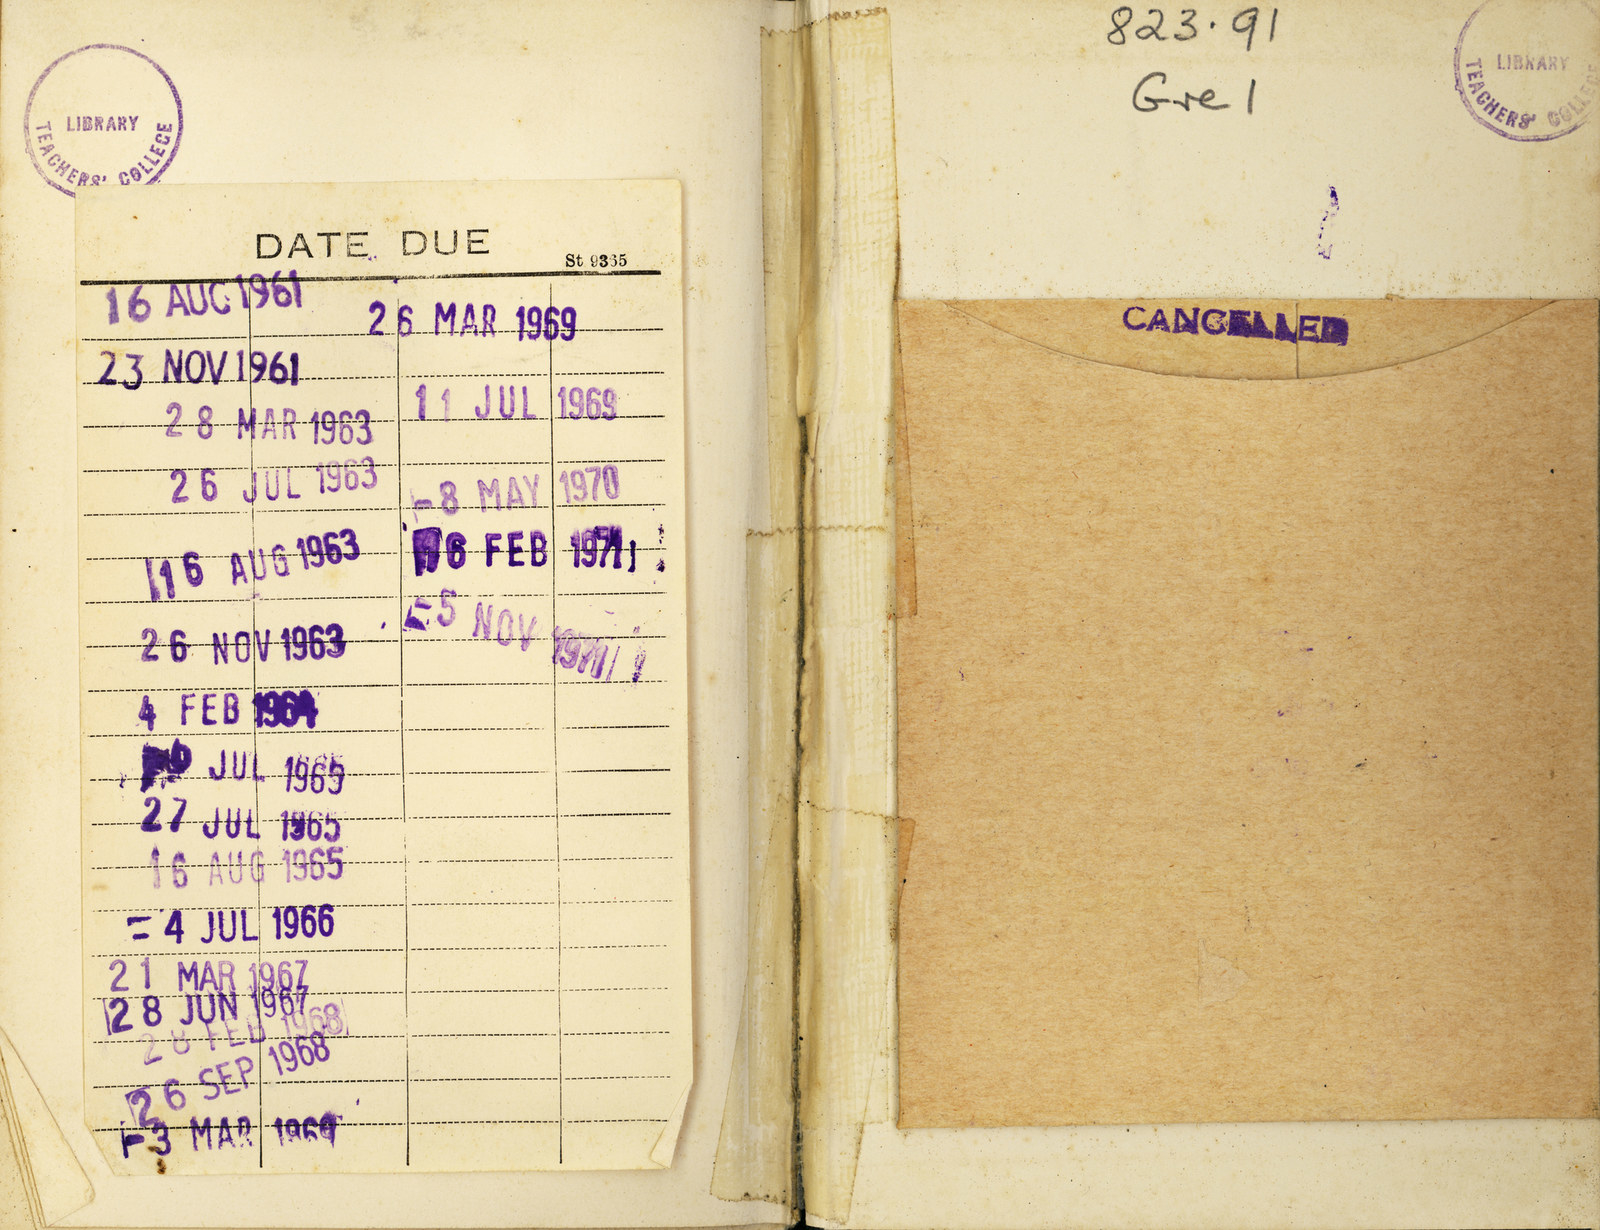 LIBRARY
TEACHERS' COLLEGE
DATE DUE
St 9335
16 AUG 1961
23 NOV 1961
28 MAR 1963
26 JUL 1963
16 AUG 1963
26 NOV 1963
4 FEB 1964
JUL 1965
27 JUL 1965
16 AUG 1965
= 4 JUL 1966
21 MAR 1967
28 JUN 1967
28 FEB 1968
26 SEP 1968
-3 MAR 1969
26 MAR 1969
11 JUL 1969
-8 MAY 1970
6 FEB 1971
-5 NOV 1971
823.91
Gre 1
LIBRARY
TEACHERS' COLLEGE
CANCELLED